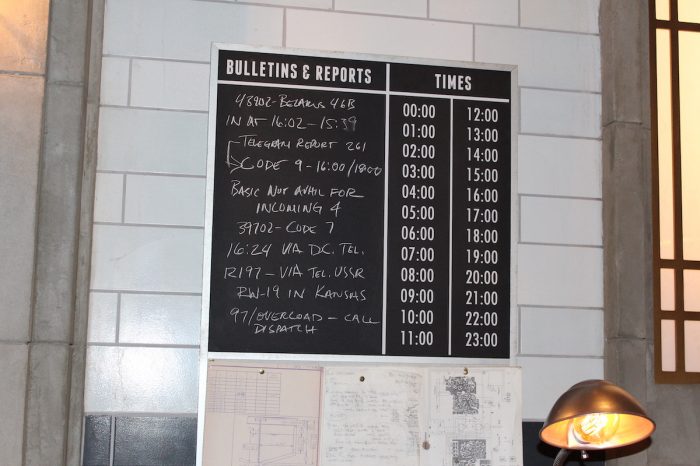 BULLETINS & REPORTS
48902-BELARUS 46B
IN AT 16:02-15:39
TELEGRAM REPORT 261
CODE 9-16:00/18:00
BASIC NOT AVAIL FOR
INCOMING 4
39702-CODE 7
16:24 VIA D.C. TEL.
R197-VIA TEL. USSR
RW-19 IN KANSAS
97/OVERLOAD-CALL
DISPATCH
TIMES
00:00 12:00
01:00 13:00
02:00 14:00
03:00 15:00
04:00 16:00
05:00 17:00
06:00 18:00
07:00 19:00
08:00 20:00
09:00 21:00
10:00 22:00
11:00 23:00